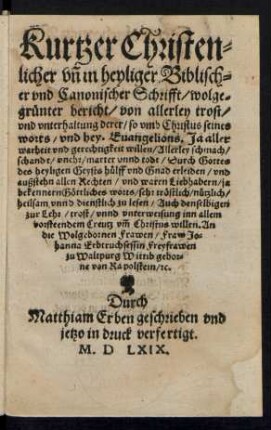 Kurtzer Christen-
licher vñ in heyliger Biblisch-
er vnd Canonischer Schrifft/ wolge-
grünter bericht/ von allerley trost/
vnd vnterhaltung derer/ so vmb Christus seines
worts/ vnd hey. Euangelions, Ja aller
warheit vnd gerechtigkeit willen/ Allerley schmach/
schandt/ vnehr/ marter vnnd todt/ Durch Gottes
des heyligen Geysts hülff vnd Gnad erleiden/ vnd
außstehn allen Rechten/ vnd waren Liebhabern/ ja
bekennern Götliches worts/ sehr tröstlich/ nützlich/
heilsam/ vnnd dienstlich zu lesen/ Auch denselbigen
zur Lehr/ trost/ vnnd vnterweisung inn allem
vorsteendem Creutz vm Christus willen. An
die Wolgebornen Frawen/ Fraw Jo-
hanna Erbtruchsessin Freyfrawen
zu Waltpurg Witib gebor-
ne von Rapolstein/ ꝛc.
Durch
Matthiam Erben geschrieben vnd
jetzo in druck verfertigt.
M. D LXIX.